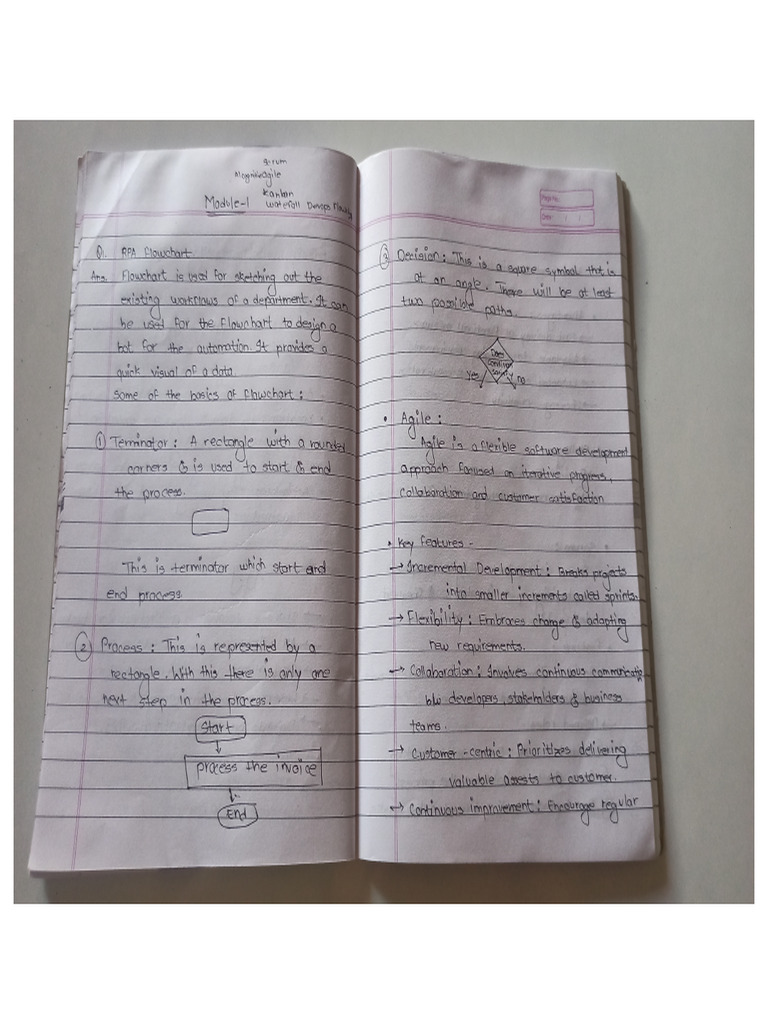 agile
Kanban
Module-1 Waterall Devops
Q. RPA Flowchart
Ans. Flowchart is used for sketching out the
existing workflows of a department. It can
be used for the flowchart to design a
bot for the automation. It provides a
quick visual of a data.
Some of the basics of flowchart :
① Terminator : A rectangle with a rounded
corners & is used to start & end
the process.
This is terminator which start and
end process
② Process : This is represented by a
rectangle. With this there is only one
next step in the process.
Start
process the invoice
End
Page No.
Date / /
③ Decision : This is a square symbol that is
at an angle. There will be at least
two possible paths.
Does
yes no
• Agile :
Agile is a flexible software development
approach focused on iterative progress,
collaboration and customer satisfaction
• Key features -
→ Incremental Development : Breaks projects
into smaller increments called sprints.
→ Flexibility : Embraces change & adapting
new requirements.
→ Collaboration : Involves continuous communication
b/w developers, stakeholders & business
teams.
→ Customer-centric : Prioritizes delivering
valuable assests to customer.
→ Continuous improvement : Encourage regular